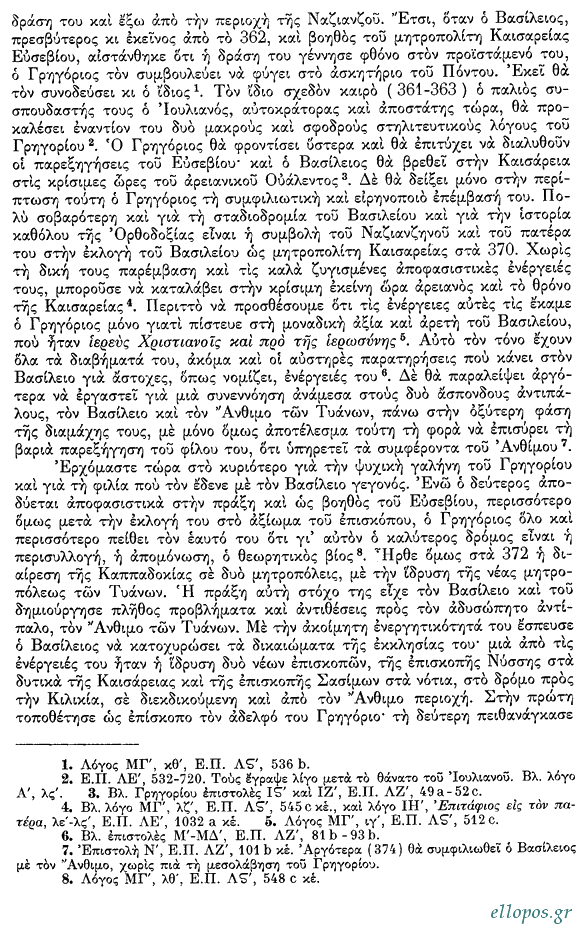 δράση του καὶ ἔξω ἀπὸ τὴν περιοχὴ τῆς Ναζιανζοῦ. Ἔτσι, ὅταν ὁ Βασίλειος,
πρεσβύτερος κι ἐκεῖνος ἀπὸ τὸ 362, καὶ βοηθὸς τοῦ μητροπολίτη Καισαρείας
Εὐσεβίου, αἰστάνθηκε ὅτι ἡ δράση του γέννησε φθόνο στὸν προϊστάμενό του,
ὁ Γρηγόριος τὸν συμβουλεύει νὰ φύγει στὸ ἀσκητήριο τοῦ Πόντου. Ἐκεῖ θὰ
τὸν συνοδεύσει κι ὁ ἴδιος¹. Τὸν ἴδιο σχεδὸν καιρὸ (361-363) ὁ παλιὸς συ-
σπουδαστής τους ὁ Ἰουλιανός, αὐτοκράτορας καὶ ἀποστάτης τώρα, θὰ προ-
καλέσει ἐναντίον του δυὸ μακροὺς καὶ σφοδροὺς στηλιτευτικοὺς λόγους τοῦ
Γρηγορίου². Ὁ Γρηγόριος θὰ φροντίσει ὕστερα καὶ θὰ ἐπιτύχει νὰ διαλυθοῦν
οἱ παρεξηγήσεις τοῦ Εὐσεβίου· καὶ ὁ Βασίλειος θὰ βρεθεῖ στὴν Καισάρεια
στὶς κρίσιμες ὧρες τοῦ ἀρειανικοῦ Οὐάλεντος³. Δὲ θὰ δείξει μόνο στὴν περί-
πτωση τούτη ὁ Γρηγόριος τὴ συμφιλιωτικὴ καὶ εἰρηνοποιὸ ἐπέμβασή του. Πο-
λὺ σοβαρότερη καὶ γιὰ τὴ σταδιοδρομία τοῦ Βασιλείου καὶ γιὰ τὴν ἱστορία
καθόλου τῆς Ὀρθοδοξίας εἶναι ἡ συμβολὴ τοῦ Ναζιανζηνοῦ καὶ τοῦ πατέρα
του στὴν ἐκλογὴ τοῦ Βασιλείου ὡς μητροπολίτη Καισαρείας στὰ 370. Χωρὶς
τὴ δική τους παρέμβαση καὶ τὶς καλὰ ζυγισμένες ἀποφασιστικὲς ἐνέργειές
τους, μποροῦσε νὰ καταλάβει στὴν κρίσιμη ἐκείνη ὥρα ἀρειανὸς καὶ τὸ θρόνο
τῆς Καισαρείας⁴. Περιττὸ νὰ προσθέσουμε ὅτι τὶς ἐνέργειες αὐτὲς τὶς ἔκαμε
ὁ Γρηγόριος μόνο γιατὶ πίστευε στὴ μοναδικὴ ἀξία καὶ ἀρετὴ τοῦ Βασιλείου,
ποὺ ἦταν ἱερεὺς Χριστιανοῖς καὶ πρὸ τῆς ἱερωσύνης⁵. Αὐτὸ τὸν τόνο ἔχουν
ὅλα τὰ διαβήματά του, ἀκόμα καὶ οἱ αὐστηρὲς παρατηρήσεις ποὺ κάνει στὸν
Βασίλειο γιὰ ἄστοχες, ὅπως νομίζει, ἐνέργειές του⁶. Δὲ θὰ παραλείψει ἀργό-
τερα νὰ ἐργαστεῖ γιὰ μιὰ συνεννόηση ἀνάμεσα στοὺς δυὸ ἄσπονδους ἀντιπά-
λους, τὸν Βασίλειο καὶ τὸν Ἄνθιμο τῶν Τυάνων, πάνω στὴν ὀξύτερη φάση
τῆς διαμάχης τους, μὲ μόνο ὅμως ἀποτέλεσμα τούτη τὴ φορὰ νὰ ἐπισύρει τὴ
βαριὰ παρεξήγηση τοῦ φίλου του, ὅτι ὑπηρετεῖ τὰ συμφέροντα τοῦ Ἀνθίμου⁷.
Ἐρχόμαστε τώρα στὸ κυριότερο γιὰ τὴν ψυχικὴ γαλήνη τοῦ Γρηγορίου
καὶ γιὰ τὴ φιλία ποὺ τὸν ἔδενε μὲ τὸν Βασίλειο γεγονός. Ἐνῶ ὁ δεύτερος ἀπο-
δύεται ἀποφασιστικὰ στὴν πράξη καὶ ὡς βοηθὸς τοῦ Εὐσεβίου, περισσότερο
ὅμως μετὰ τὴν ἐκλογή του στὸ ἀξίωμα τοῦ ἐπισκόπου, ὁ Γρηγόριος ὅλο καὶ
περισσότερο πείθει τὸν ἑαυτό του ὅτι γι' αὐτὸν ὁ καλύτερος δρόμος εἶναι ἡ
περισυλλογή, ἡ ἀπομόνωση, ὁ θεωρητικὸς βίος⁸. Ἦρθε ὅμως στὰ 372 ἡ δι-
αίρεση τῆς Καππαδοκίας σὲ δυὸ μητροπόλεις, μὲ τὴν ἵδρυση τῆς νέας μητρο-
πόλεως τῶν Τυάνων. Ἡ πράξη αὐτὴ στόχο της εἶχε τὸν Βασίλειο καὶ τοῦ
δημιούργησε πλῆθος προβλήματα καὶ ἀντιθέσεις πρὸς τὸν ἀδυσώπητο ἀντί-
παλο, τὸν Ἄνθιμο τῶν Τυάνων. Μὲ τὴν ἀκοίμητη ἐνεργητικότητά του ἔσπευσε
ὁ Βασίλειος νὰ κατοχυρώσει τὰ δικαιώματα τῆς ἐκκλησίας του· μιὰ ἀπὸ τὶς
ἐνέργειές του ἦταν ἡ ἵδρυση δυὸ νέων ἐπισκοπῶν, τῆς ἐπισκοπῆς Νύσσης στὰ
δυτικὰ τῆς Καισάρειας καὶ τῆς ἐπισκοπῆς Σασίμων στὰ νότια, στὸ δρόμο πρὸς
τὴν Κιλικία, σὲ διεκδικούμενη καὶ ἀπὸ τὸν Ἄνθιμο περιοχή. Στὴν πρώτη
τοποθέτησε ὡς ἐπίσκοπο τὸν ἀδελφό του Γρηγόριο· τὴ δεύτερη πειθανάγκασε
1. Λόγος ΜΓ′, κθ′, Ε.Π. ΛϚ′, 536 b.
2. Ε.Π. ΛΕ′, 532-720. Τοὺς ἔγραψε λίγο μετὰ τὸ θάνατο τοῦ Ἰουλιανοῦ. Βλ. λόγο
Α′, λς′. 3. Βλ. Γρηγορίου ἐπιστολὲς ΙϚ′ καὶ ΙΖ′, Ε.Π. ΛΖ′, 49 a - 52 c.
4. Βλ. λόγο ΜΓ′, λζ′, Ε.Π. ΛϚ′, 545 c κέ., καὶ λόγο ΙΗ′, Ἐπιτάφιος εἰς τὸν πα-
τέρα, λε′-λς′, Ε.Π. ΛΕ′, 1032 a κέ. 5. Λόγος ΜΓ′, ιγ′, Ε.Π. ΛϚ′, 512 c.
6. Βλ. ἐπιστολὲς Μ′-ΜΔ′, Ε.Π. ΛΖ′, 81 b - 93 b.
7. Ἐπιστολὴ Ν′, Ε.Π. ΛΖ′, 101 b κέ. Ἀργότερα (374) θὰ συμφιλιωθεῖ ὁ Βασίλειος
μὲ τὸν Ἄνθιμο, χωρὶς πιὰ τὴ μεσολάβηση τοῦ Γρηγορίου.
8. Λόγος ΜΓ′, λθ′, Ε.Π. ΛϚ′, 548 c κέ.
ellopos.gr